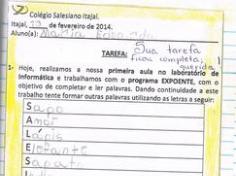 Colégio Salesiano Itajaí.
Itajaí, 19 de fevereiro de 2014.
Aluno(a): Maria
TAREFA: Sua tarefa
ficou completa,
querida
1- Hoje, realizamos a nossa primeira aula no laboratório de
Informática e trabalhamos com o programa EXPOENTE, com o
objetivo de completar e ler palavras. Dando continuidade a este
trabalho tente formar outras palavras utilizando as letras a seguir:
Sapo
Amor
Lápis
Elefante
Sapato